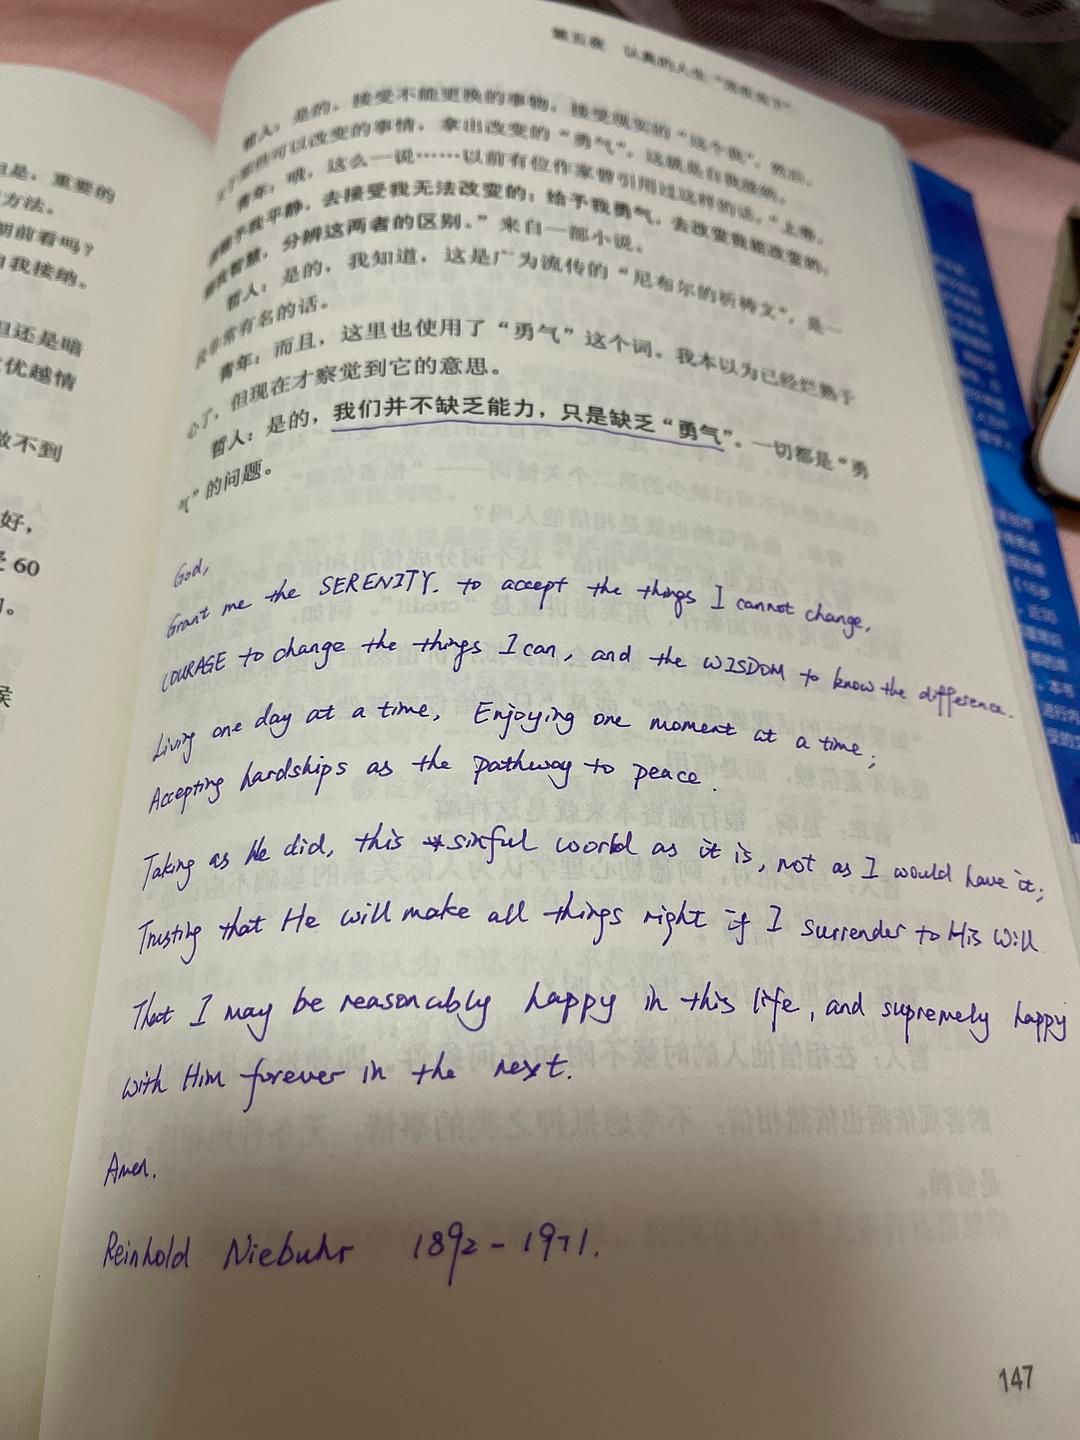 但是，重要的
方法。
朝前看吗？
自我接纳。
但还是暗
优越情
做不到
好，
60
第五夜 认真的人生“活在当下”
哲人：是的。接受不能更换的事物，接受现实的“这个我”，然后，
关于那些可以改变的事情，拿出改变的“勇气”。这就是自我接纳。
青年：哦，这么一说……以前有位作家曾引用过这样的话，“上帝，
请赐予我平静，去接受我无法改变的；给予我勇气，去改变我能改变的；
赐我智慧，分辨这两者的区别。”来自一部小说。
哲人：是的，我知道，这是广为流传的“尼布尔的祈祷文”，是一
段非常有名的话。
青年：而且，这里也使用了“勇气”这个词。我本以为已经烂熟于
心了，但现在才察觉到它的意思。
哲人：是的，我们并不缺乏能力，只是缺乏“勇气”。一切都是“勇
气”的问题。
God,
Grant me the SERENITY. to accept the things I cannot change,
COURAGE to change the things I can, and the WISDOM to know the difference.
Living one day at a time, Enjoying one moment at a time;
Accepting hardships as the pathway to peace.
Taking as He did, this sinful world as it is, not as I would have it;
Trusting that He will make all things right if I surrender to His Will
That I may be reasonably happy in this life, and supremely happy
with Him forever in the next.
Amen.
Reinhold Niebuhr 1892-1971.
147